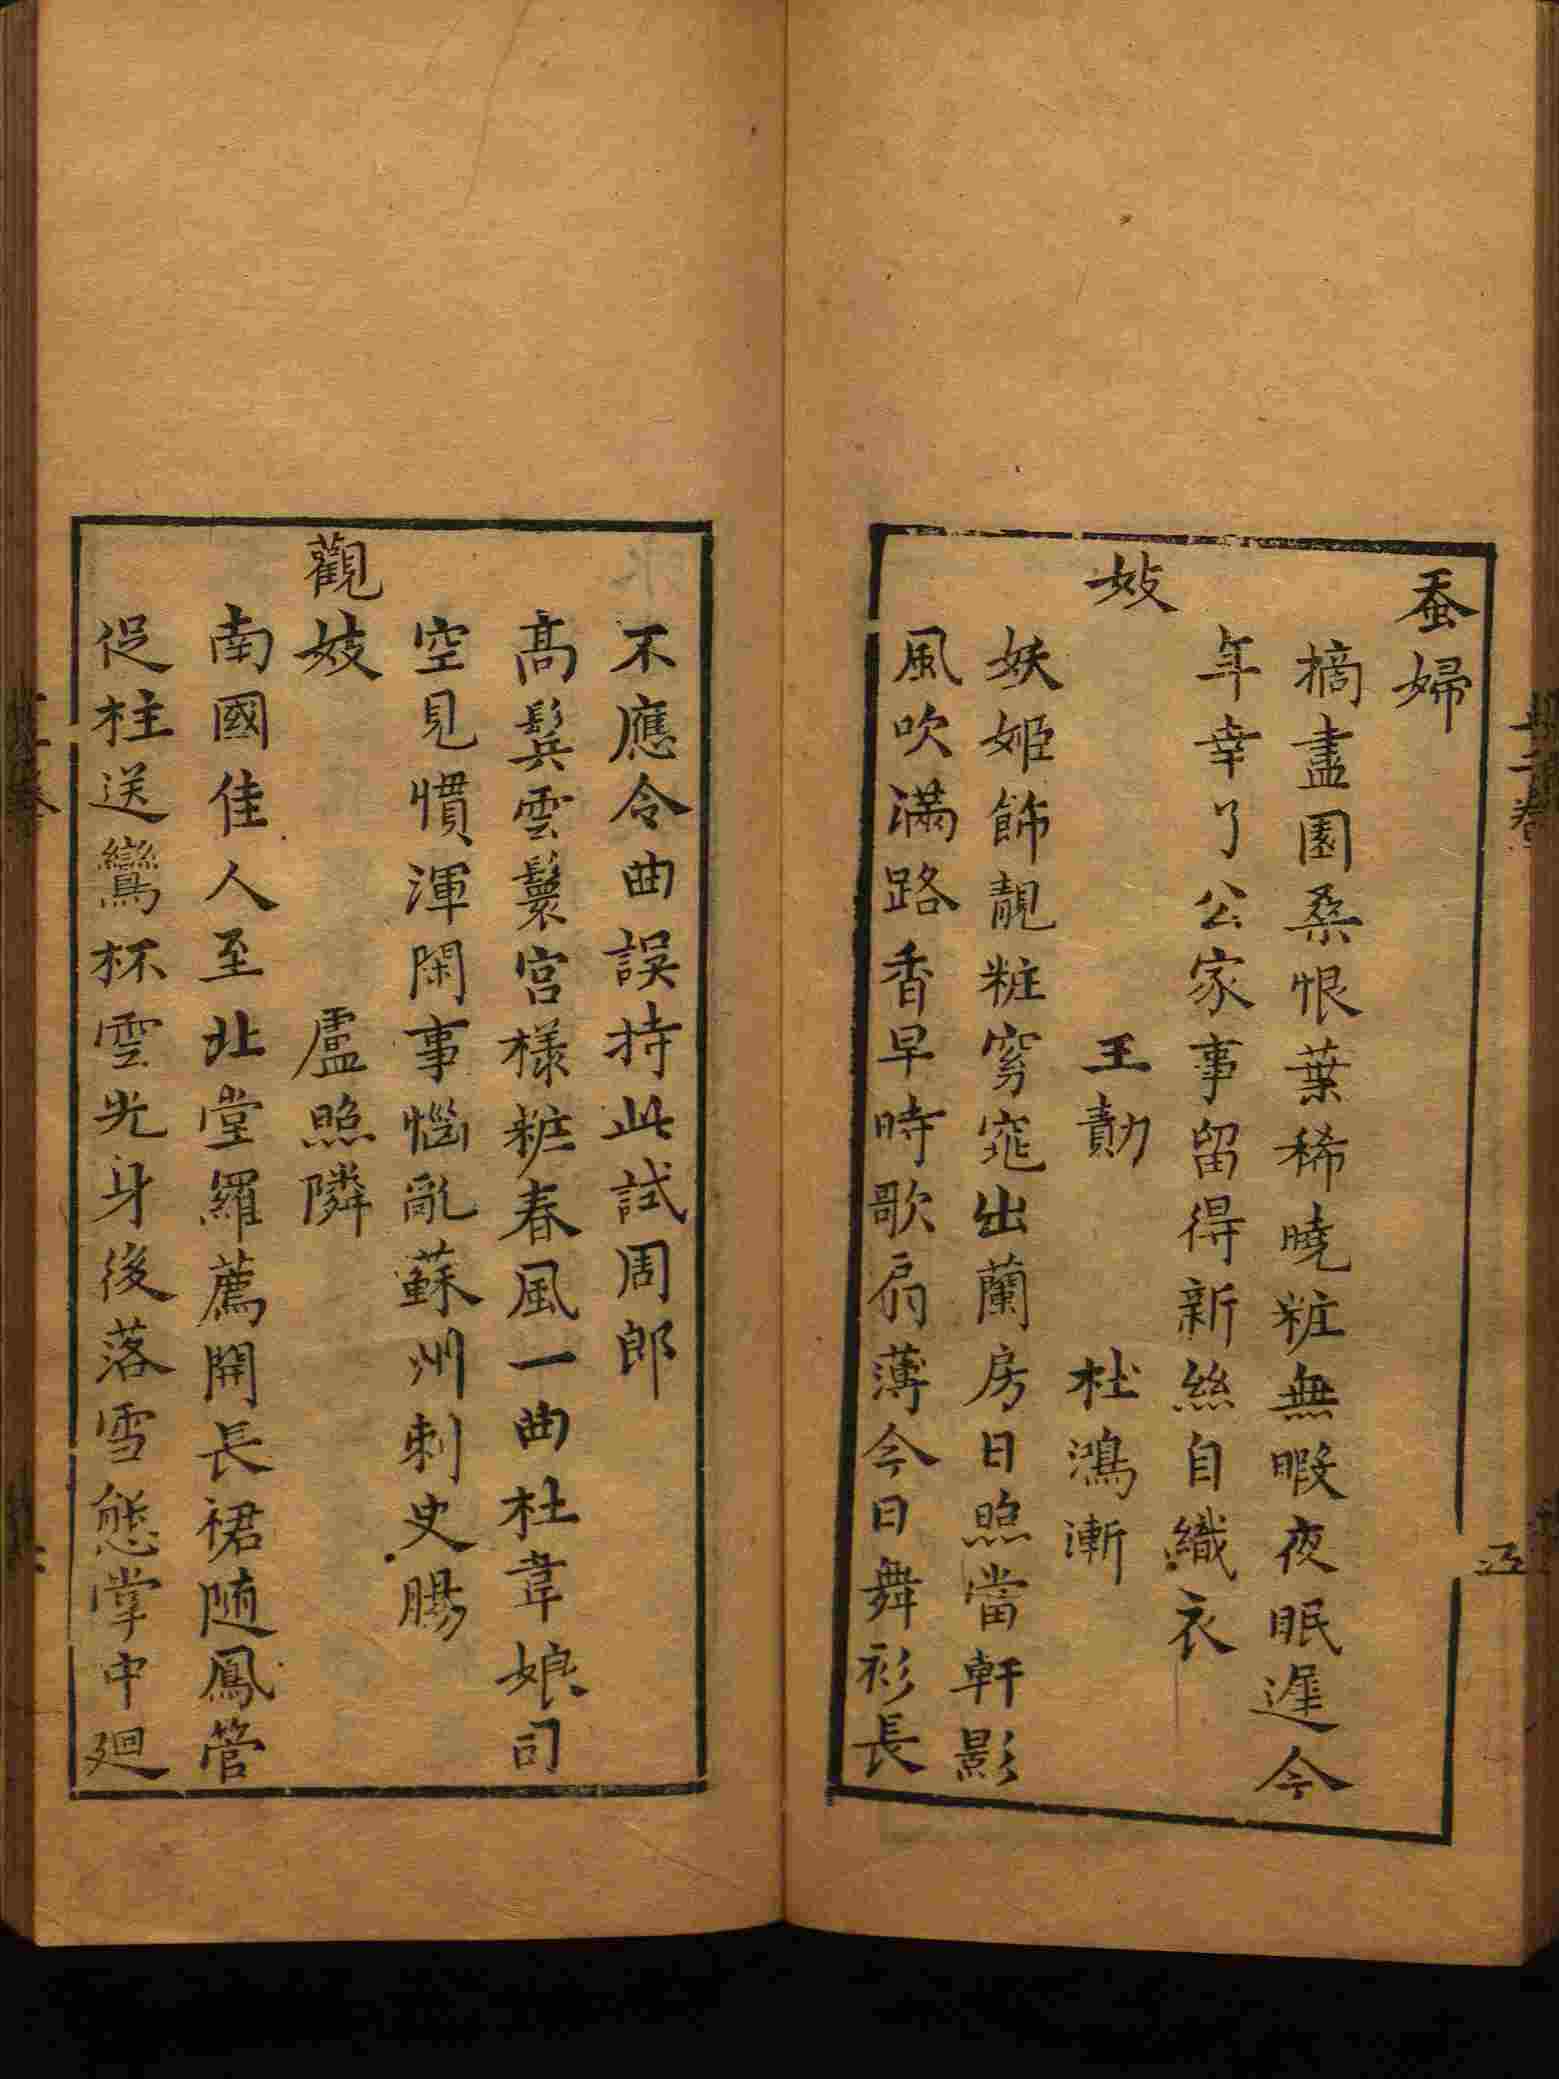 蚕婦
摘盡園桑恨葉稀曉粧無暇夜眠遲今
年幸了公家事留得新絲自織衣
妓 王勣 杜鴻漸
妖姬飾靚粧窈窕出蘭房日照當軒影
風吹滿路香早時歌扇薄今日舞衫長
不應令曲誤持此試周郎
高髩雲鬟宮樣粧春風一曲杜韋娘司
空見慣渾閑事惱亂蘇州刺史腸
觀妓 盧照隣
南國佳人至北堂羅薦開長裙随鳳管
促柱送鸞杯雲光身後落雪態掌中廻